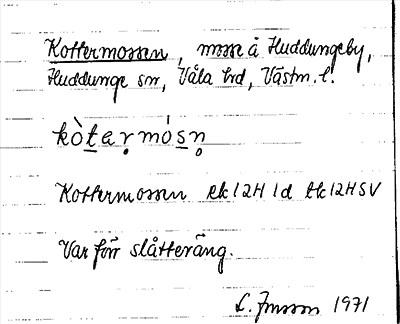 Kottermossen, mosse å Huddungeby,
Huddunge sn, Våla hd, Västm. l.
kòt̲ẹrmós̲n̥
Kottermossen ek 12H 1d tk 12H SV
Var förr slåtteräng.
L. Jonsson 1971